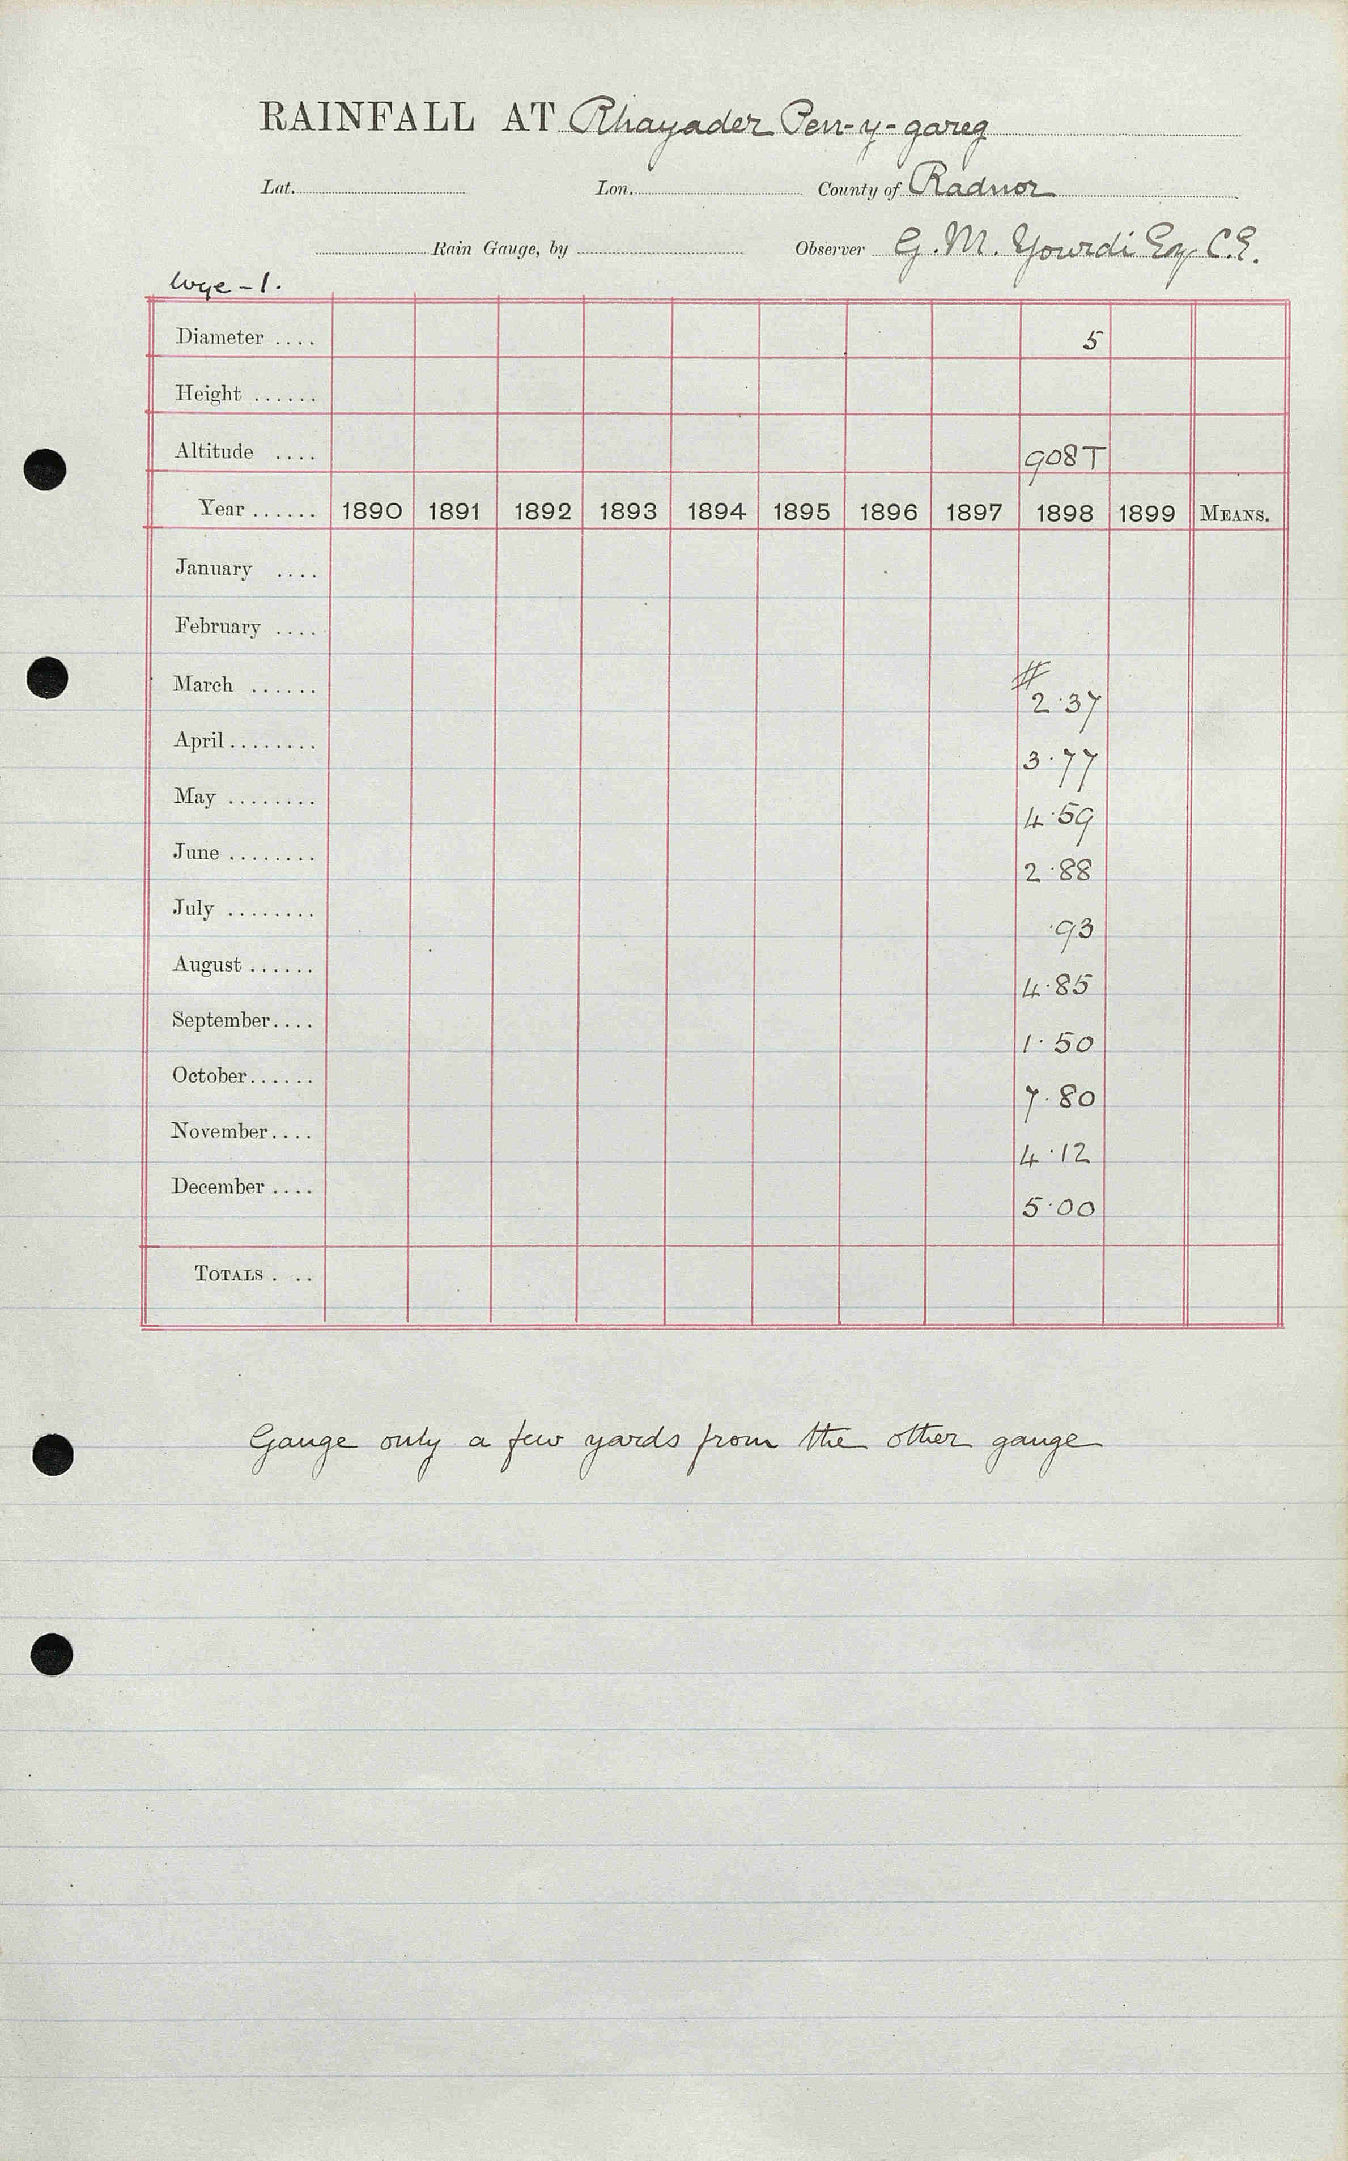 RAINFALL AT Rhayader Pen-y-gareg
Lat. Lon. County of Radnor
Rain Gauge, by Observer G. M. Yourdi Esq C.E.
Wye - 1.
Diameter .... 5
Height ......
Altitude .... 908T
Year ...... 1890 1891 1892 1893 1894 1895 1896 1897 1898 1899 MEANS.
January ....
February ....
March ...... # 2.37
April ........ 3.77
May ........ 4.59
June ........ 2.88
July ........ .93
August ...... 4.85
September.... 1.50
October...... 7.80
November.... 4.12
December .... 5.00
TOTALS . ..
Gauge only a few yards from the other gauge